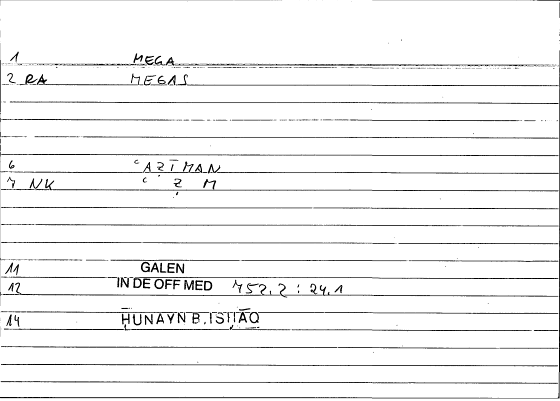 1 MEGA
2 RA MEGAS
6 ʿAẒĪMAN
7 NK ʿ Ẓ M
11 GALEN
12 IN DE OFF MED 752.2 : 24.1
14 ḤUNAYN B.ISḤĀQ